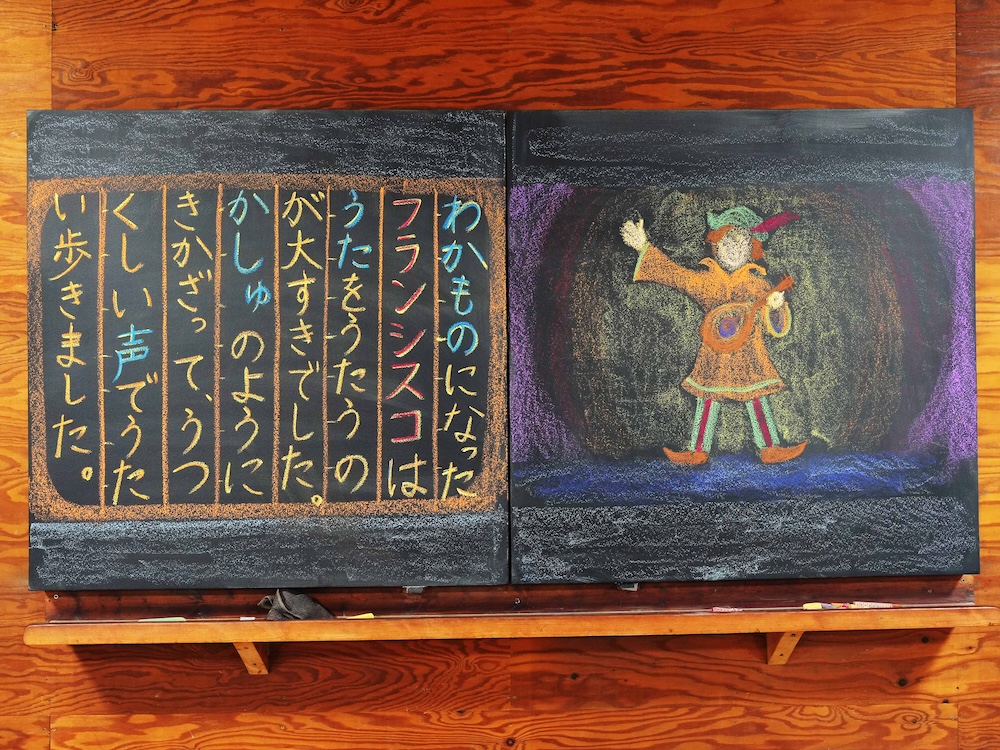 わかものになった
フランシスコは
うたをうたうの
が大すきでした。
かしゅのように
きかざって、うつ
くしい声でうた
い歩きました。